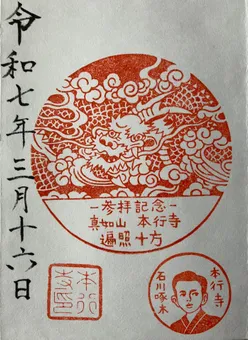 令和七年三月十六日
-参拝記念-
真如山 本行寺
遍照十方
本行寺
石川啄木